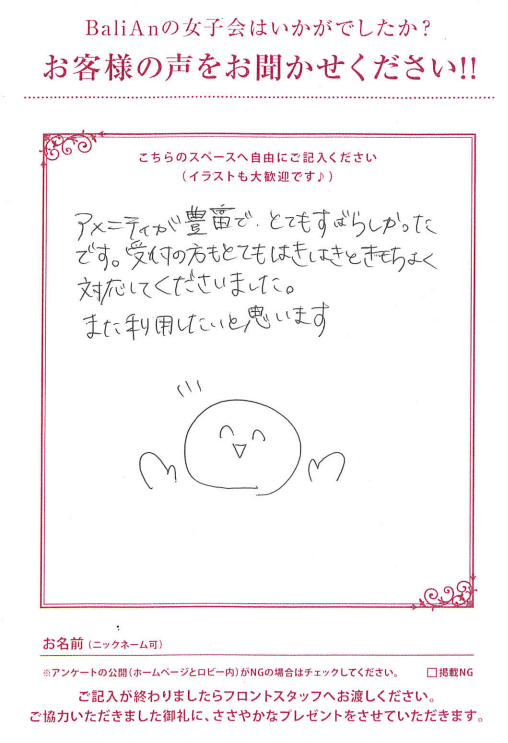 BaliAnの女子会はいかがでしたか?
お客様の声をお聞かせください!!
こちらのスペースへ自由にご記入ください
(イラストも大歓迎です♪)
アメニティが豊富で、とてもすばらしかった
です。受付の方もとてもはきはきときもちよく
対応してくださいました。
また利用したいと思います
お名前(ニックネーム可)
※アンケートの公開(ホームページとロビー内)がNGの場合はチェックしてください。 □掲載NG
ご記入が終わりましたらフロントスタッフへお渡しください。
ご協力いただきました御礼に、ささやかなプレゼントをさせていただきます。